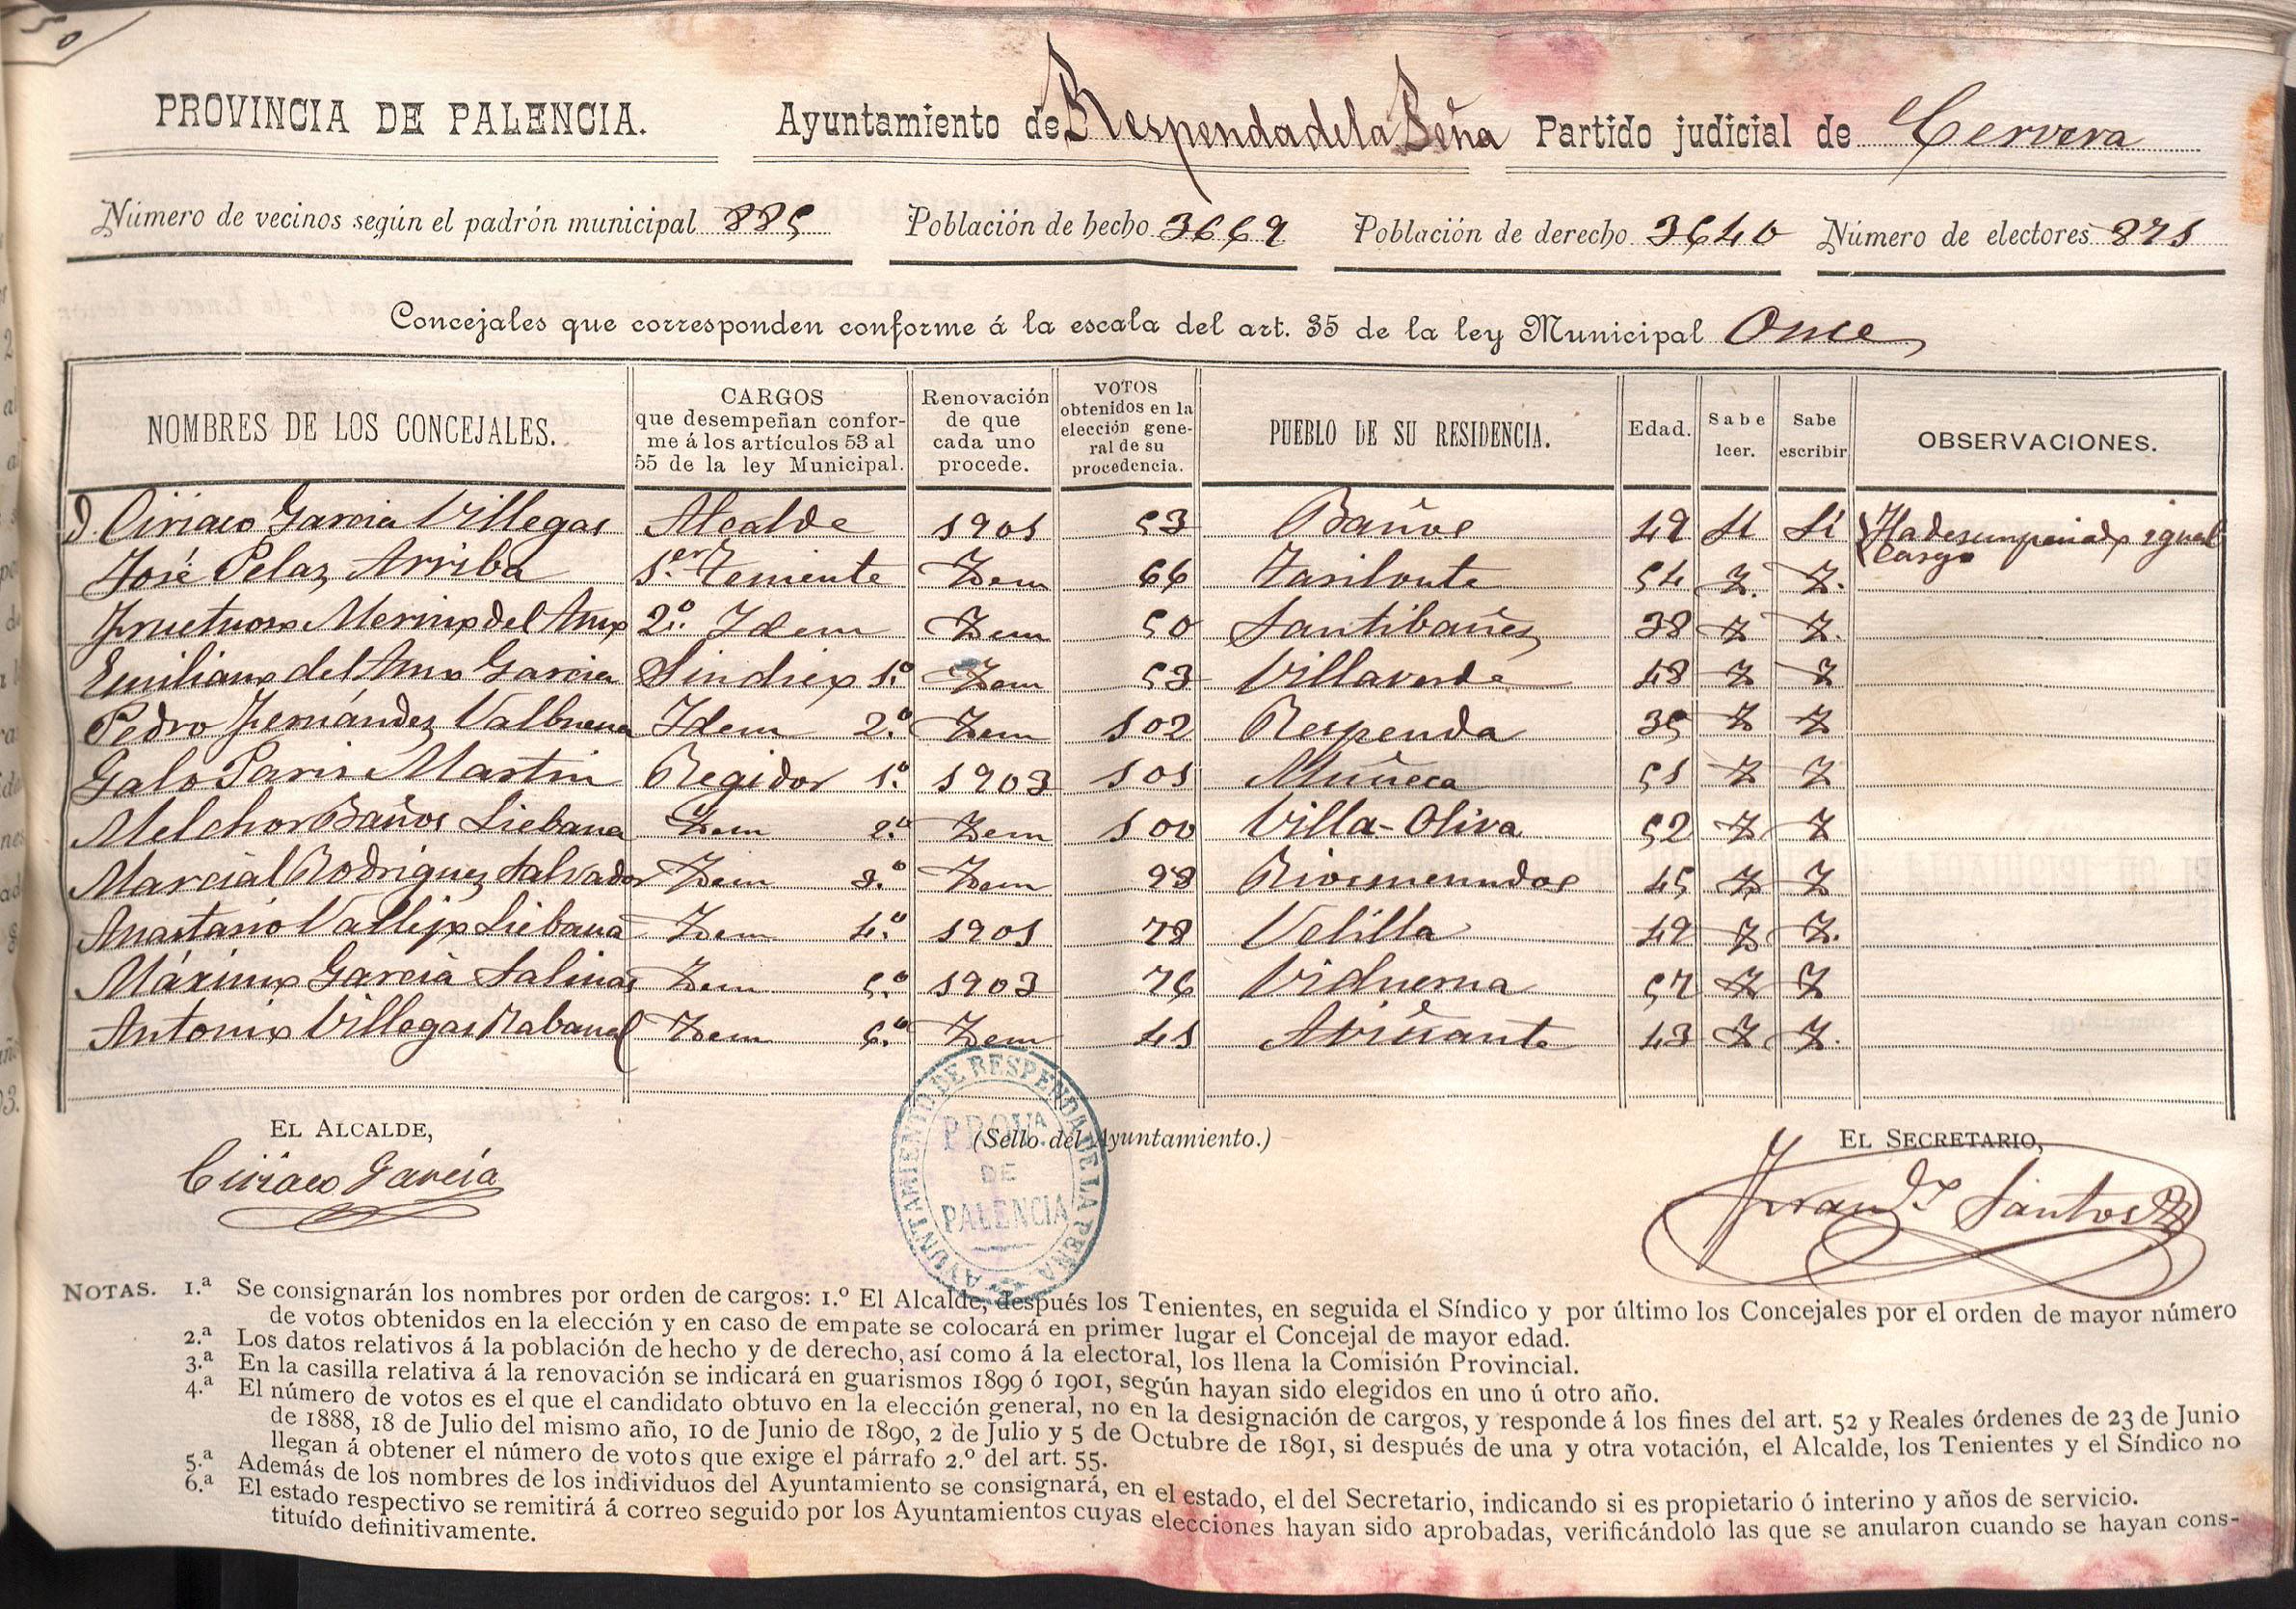 50
PROVINCIA DE PALENCIA. Ayuntamiento de Respenda de la Peña Partido judicial de Cervera
Número de vecinos según el padrón municipal 885 Población de hecho 3669 Población de derecho 3640 Número de electores 871
Concejales que corresponden conforme á la escala del art. 35 de la ley Municipal Once
NOMBRES DE LOS CONCEJALES. CARGOS que desempeñan conforme á los artículos 53 al 55 de la ley Municipal. Renovación de que cada uno procede. VOTOS obtenidos en la elección general de su procedencia. PUEBLO DE SU RESIDENCIA. Edad. Sabe leer. Sabe escribir OBSERVACIONES.
D. Ciriaco Garcia Villegas Alcalde 1901 53 Baños 49 Si Si Ha desempeñado igual cargo
José Pelaz Arriba 1.er Teniente Idem 66 Tarilonte 54 I. I.
Fructuoso Merino del Amo 2.º Idem Idem 50 Santibañez 38 I I.
Emiliano del Amo Garcia Sindico 1.º Idem 53 Villaverde 48 I I
Pedro Fernández Valbuena Idem 2.º Idem 102 Respenda 35 I I
Galo Paris Martin Regidor 1.º 1903 101 Muñeca 51 I I
Melchor Baños Liebana Idem 2.º Idem 100 Villa-Oliva 52 I I
Marcial Rodriguez Salvador Idem 3.º Idem 98 Riosmenudos 45 I I
Anastasio Vallejo Liebana Idem 4.º 1901 78 Velilla 49 I I.
Máximo García Salinas Idem 5.º 1903 76 Viduerna 57 I I
Antonio Villegas Rabanal Idem 6.º Idem 41 Aviñante 43 I I.
EL ALCALDE, (Sello del Ayuntamiento.) EL SECRETARIO,
Ciriaco García
AYUNTAMIENTO DE RESPENDA DE LA PEÑA
PROV.ª DE PALENCIA
Fran.do Santos
NOTAS. 1.ª Se consignarán los nombres por orden de cargos: 1.º El Alcalde, después los Tenientes, en seguida el Síndico y por último los Concejales por el orden de mayor número
de votos obtenidos en la elección y en caso de empate se colocará en primer lugar el Concejal de mayor edad.
2.ª Los datos relativos á la población de hecho y de derecho, así como á la electoral, los llena la Comisión Provincial.
3.ª En la casilla relativa á la renovación se indicará en guarismos 1899 ó 1901, según hayan sido elegidos en uno ú otro año.
4.ª El número de votos es el que el candidato obtuvo en la elección general, no en la designación de cargos, y responde á los fines del art. 52 y Reales órdenes de 23 de Junio
de 1888, 18 de Julio del mismo año, 10 de Junio de 1890, 2 de Julio y 5 de Octubre de 1891, si después de una y otra votación, el Alcalde, los Tenientes y el Síndico no
llegan á obtener el número de votos que exige el párrafo 2.º del art. 55.
5.ª Además de los nombres de los individuos del Ayuntamiento se consignará, en el estado, el del Secretario, indicando si es propietario ó interino y años de servicio.
6.ª El estado respectivo se remitirá á correo seguido por los Ayuntamientos cuyas elecciones hayan sido aprobadas, verificándolo las que se anularon cuando se hayan cons-
tituído definitivamente.